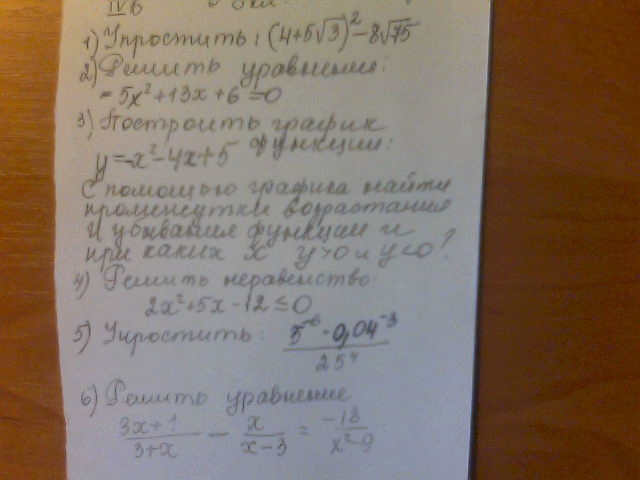 IV в
1) Упростить: (4+5√3)² - 8√75
2) Решить уравнение:
- 5x² + 13x + 6 = 0
3) Построить график
функции:
y = -x² - 4x + 5
С помощью графика найти
промежутки возрастания
и убывания функции и
при каких x y>0 и y<0?
4) Решить неравенство:
2x² + 5x - 12 ≤ 0
5) Упростить: 5⁻⁶ · 0,04⁻³
25⁴
6) Решить уравнение
3x+1 / 3+x - x / x-3 = -18 / x²-9